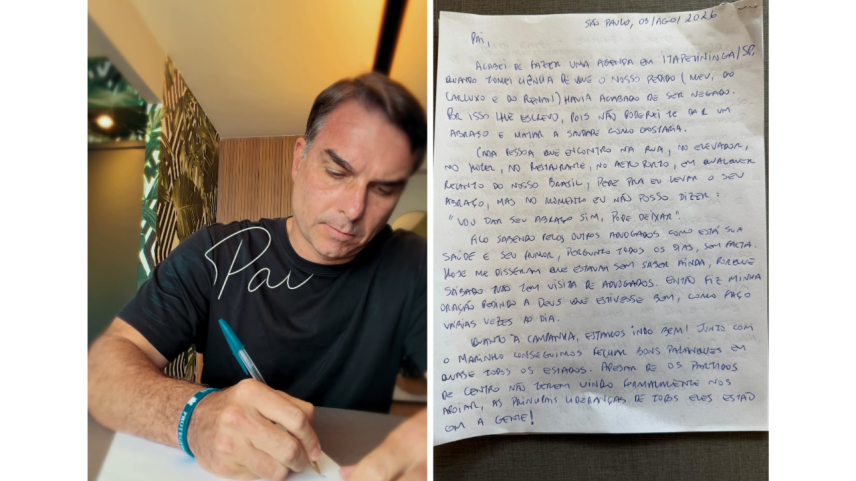 Pai
SÃO PAULO, 03/AGO/2026
PAI,
ACABEI DE FAZER UMA AGENDA EM ITAPETININGA/SP,
QUANDO TOMEI CIÊNCIA DE QUE O NOSSO PEDIDO (MEU, DO
CARLUXO E DO RENAN) HAVIA ACABADO DE SER NEGADO.
POR ISSO LHE ESCREVO, POIS NÃO PODEREI TE DAR UM
ABRAÇO E MATAR A SAUDADE COMO GOSTARIA.
CADA PESSOA QUE ENCONTRO NA RUA, NO ELEVADOR,
NO HOTEL, NO RESTAURANTE, NO AEROPORTO, EM QUALQUER
RECANTO DO NOSSO BRASIL, PEDE PRA EU LEVAR O SEU
ABRAÇO, MAS NO MOMENTO EU NÃO POSSO DIZER:
"VOU DAR SEU ABRAÇO SIM, PODE DEIXAR".
FICO SABENDO PELOS OUTROS ADVOGADOS COMO ESTÁ SUA
SAÚDE E SEU HUMOR, PERGUNTO TODOS OS DIAS, SEM FALTA.
HOJE ME DISSERAM QUE ESTAVAM SEM SABER AINDA, PORQUE
SÁBADO NÃO TEM VISITA DE ADVOGADOS. ENTÃO FIZ MINHA
ORAÇÃO PEDINDO A DEUS QUE ESTIVESSE BEM, COMO FAÇO
VÁRIAS VEZES AO DIA.
QUANTO À CAMPANHA, ESTAMOS INDO BEM! JUNTO COM
O MARINHO CONSEGUIMOS FECHAR BONS PALANQUES EM
QUASE TODOS OS ESTADOS. APESAR DE OS PARTIDOS
DE CENTRO NÃO TEREM VINDO FORMALMENTE NOS
APOIAR, AS PRINCIPAIS LIDERANÇAS DE TODOS ELES ESTÃO
COM A GENTE!